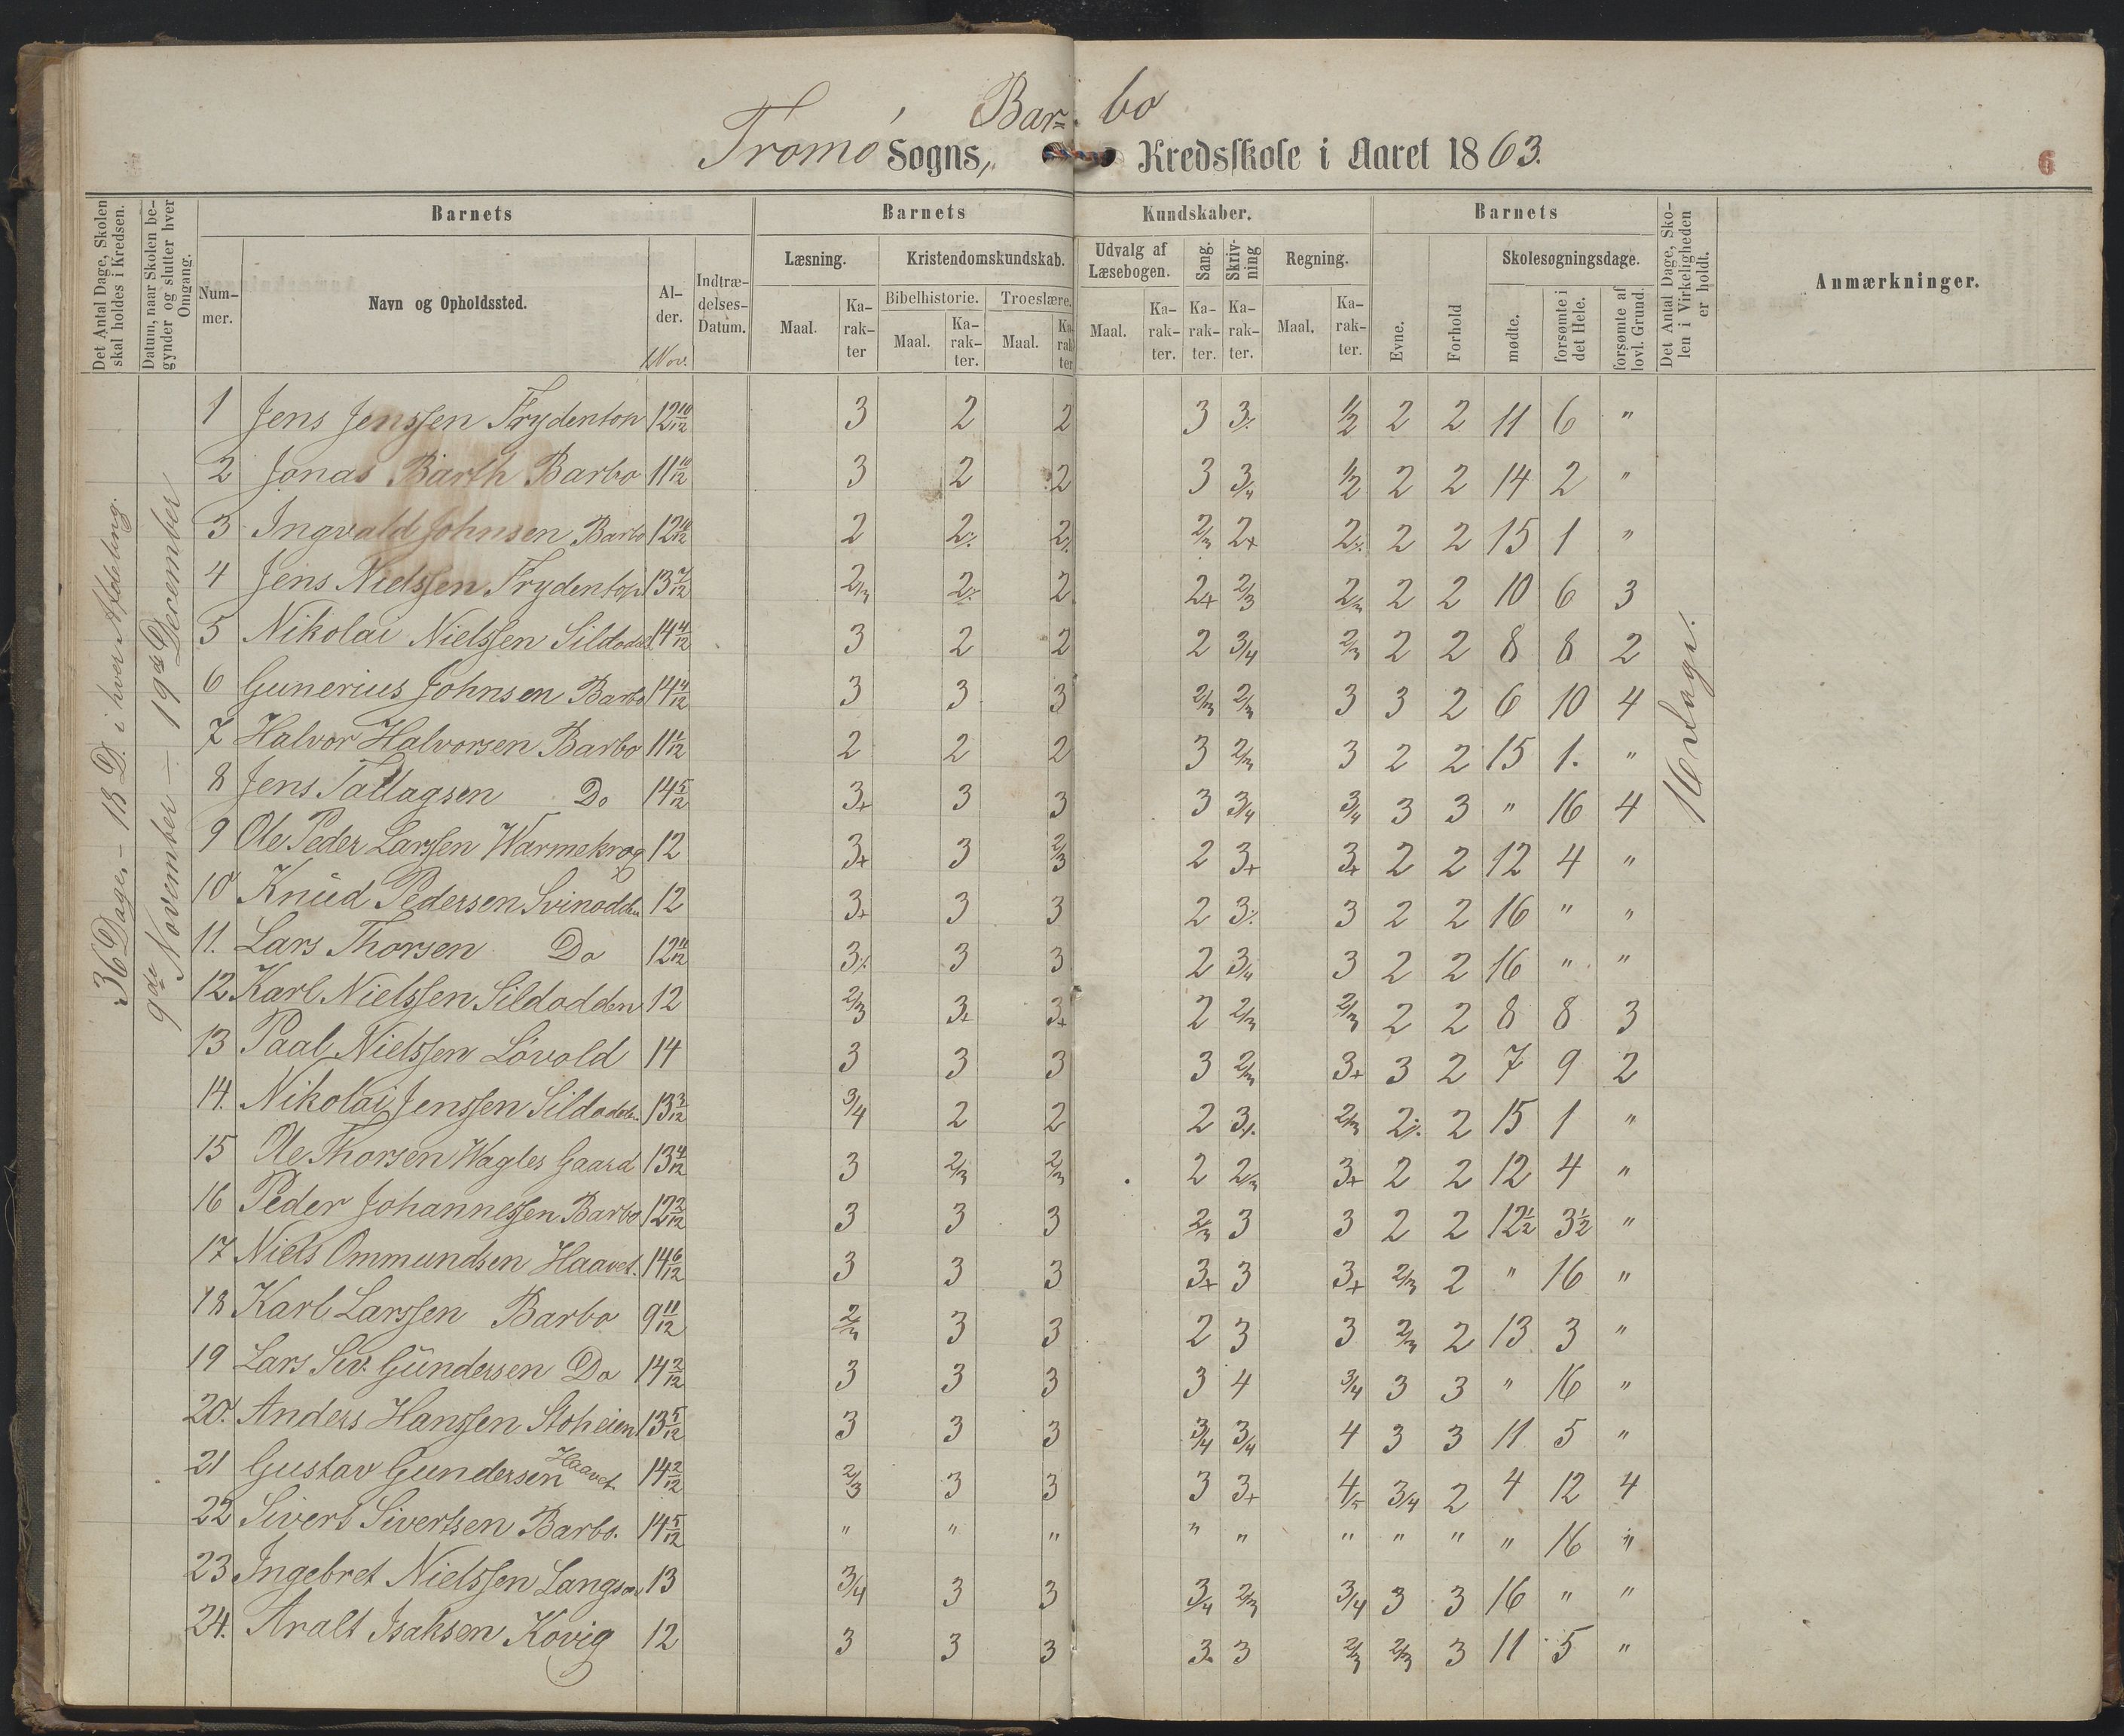 Bar= bo
Tromö Sogns, Kredsskole i Aaret 1863.
6
Det Antal Dage, Skolen skal holdes i Kredsen.
Datum, naar Skolen begynder og slutter hver Omgang.
Barnets Barnets Kundskaber. Barnets
Det Antal Dage, Skolen i Virkeligheden er holdt.
Anmærkninger.
Nummer. Navn og Opholdssted. Alder. Indtrædelses-Datum.
1 Nov.
Læsning. Kristendomskundskab. Udvalg af Læsebogen. Sang. Skrivning Regning. Evne. Forhold Skolesøgningsdage.
Bibelhistorie. Troeslære.
Maal. Karakter Maal. Karakter. Maal. Karakter Maal. Karakter. Karakter. Karakter. Maal. Karakter. mødte. forsømte i det Hele. forsømte af lovl. Grund.
36 Dage, - 18 D. i hver Afdeling.
9de November - 19de December
16 Dage.
1 Jens Jenssen Frydentop 12 10/12 3 2 2 3 3⁒ 1/2 2 2 11 6 "
2 Jonas Barth Barbo 11 10/12 3 2 2 3 3/4 1/2 2 2 14 2 "
3 Ingvald Johnsen Barbo 12 10/12 2 2⁒ 2⁒ 2/3 2+ 2⁒ 2 2 15 1 "
4 Jens Nielssen Frydentop 13 7/12 2/3 2⁒ 2 2+ 2/3 2/3 2 2 10 6 3
5 Nikolai Nielssen Sildodd. 14 4/12 3 2 2 2 3/4 2/3 2 2 8 8 2
6 Gunerius Johnsen Barbo 14 4/12 3 3 3 2/3 2/3 3 3 2 6 10 4
7 Halvor Halvorsen Barbo 11 1/12 2 2 2 3 2/3 3 2 2 15 1. "
8 Jens Tallagsen Do 14 5/12 3+ 3 3 3 3/4 3/4 3 3 " 16 4
9 Ole Peder Larssen Warmekrog 12 3+ 3 2/3 2 3+ 3+ 2 2 12 4 "
10 Knud Pedersen Svinodden 12 3+ 3 3 2 3⁒ 3 2 2 16 " "
11. Lars Thorsen Do 12 11/12 3⁒ 3 3 2 3/4 3 2 2 16 " "
12 Karl Nielssen Sildodden 12 2/3 3+ 3+ 2 2/3 2/3 2 2 8 8 3
13 Paal Nielssen Lövold 14 3 3 3 3 2/3 3+ 3 2 7 9 2
14. Nikolai Jenssen Sildodden 13 3/12 3/4 2 2 2 3⁒ 2/3 2⁒ 2 15 1 "
15 Ole Thorsen Wagles Gaard 13 4/12 3 2/3 2/3 2 2/3 3+ 2 2 12 4 "
16 Peder Johannessen Barbo 12 2/12 3 3 3 2/3 3 3 2 2 12 1/2 3 1/2 "
17 Niels Ommundsen Haavet. 14 6/12 3 3 3 3+ 3 3+ 2/3 2 " 16 "
18 Karl Larssen Barbo 9 11/12 2/3 3 3 2 3 3 2/3 2 13 3 "
19 Lars Siv. Gundersen Do 14 2/12 3 3 3 3 4 3/4 3 3 " 16 "
20. Anders Hanssen Stoheien 13 5/12 3 3 3 3/4 3/4 4 3 3 11 5 "
21 Gustav Gundersen Haavet 14 2/12 2/3 3 3 3 3+ 4/5 3/4 2 4 12 4
22 Sivert Sivertsen Barbo. 14 5/12 " " " " " " " " " 16 "
23 Ingebret Nielssen Langsæ 13 3/4 3 3 3/4 2/3 3/4 3 3 16 " "
24. Aralt Isaksen Kovig 12 3 3 3 3. 3 2/3 2/3 3 11 5 "